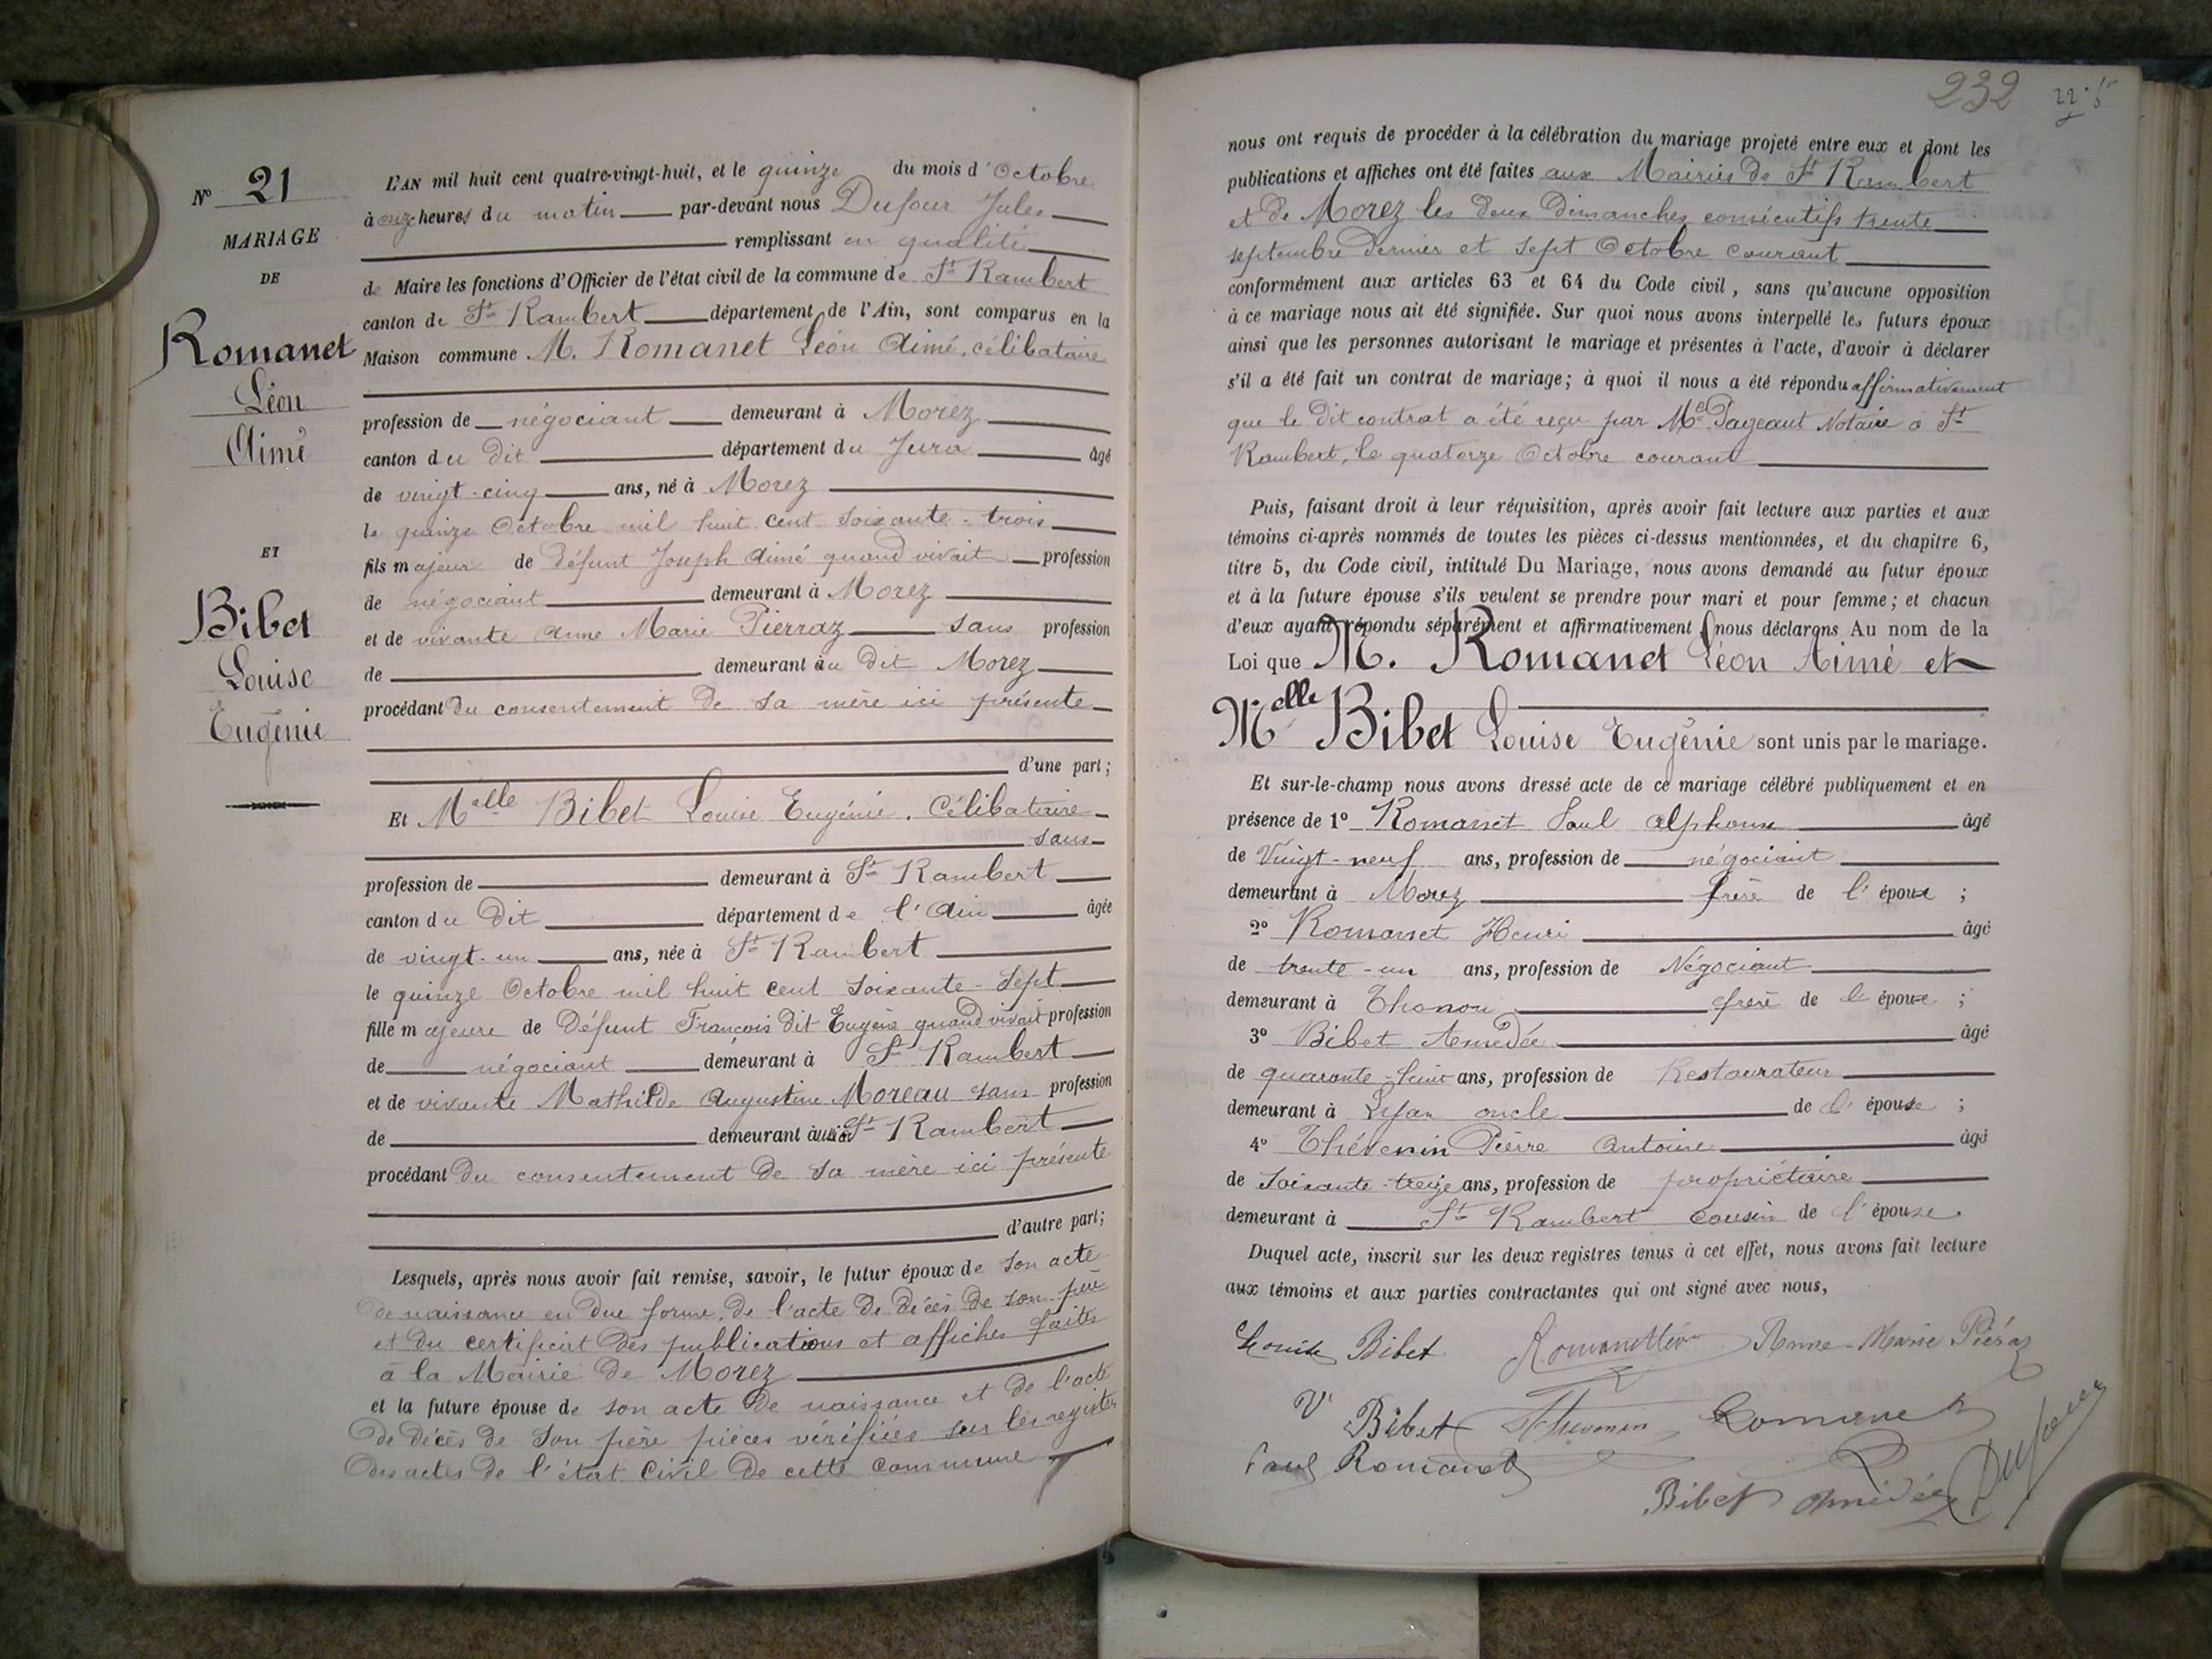 N° 21
MARIAGE
DE
Romanet
Léon
Aimé
ET
Bibet
Louise
Eugénie
L'AN mil huit cent quatre-vingt-huit, et le quinze du mois d'Octobre
à onze heures du matin par-devant nous Dufour Jules
remplissant en qualité
de Maire les fonctions d'Officier de l'état civil de la commune de St Rambert
canton de St Rambert département de l'Ain, sont comparus en la
Maison commune M. Romanet Léon Aimé, célibataire
profession de négociant demeurant à Morez
canton du dit département du Jura âgé
de vingt-cinq ans, né à Morez
le quinze Octobre mil huit cent soixante-trois
fils majeur de défunt Joseph Aimé quand vivait profession
de négociant demeurant à Morez
et de vivante Anne Marie Pierraz sans profession
de demeurant au dit Morez
procédant du consentement de sa mère ici présente
d'une part;
Et Melle Bibet Louise Eugénie, Célibataire
sans
profession de demeurant à St Rambert
canton du dit département de l'Ain âgée
de vingt-un ans, née à St Rambert
le quinze Octobre mil huit cent soixante-sept
fille majeure de Défunt François dit Eugène quand vivait profession
de négociant demeurant à St Rambert
et de vivante Mathilde Augustine Moreau sans profession
de demeurant St Rambert
procédant du consentement de sa mère ici présente
d'autre part;
Lesquels, après nous avoir fait remise, savoir, le futur époux de son acte
de naissance en due forme, de l'acte de décès de son père
et du certificat des publications et affiches faites
à la Mairie de Morez
et la future épouse de son acte de naissance et de l'acte
de décès de son père pièces vérifiées sur les registres
des actes de l'état civil de cette commune
232
nous ont requis de procéder à la célébration du mariage projeté entre eux et dont les
publications et affiches ont été faites aux Mairies de St Rambert
et de Morez les deux Dimanches consécutifs trente
septembre dernier et sept Octobre courant
conformément aux articles 63 et 64 du Code civil, sans qu'aucune opposition
à ce mariage nous ait été signifiée. Sur quoi nous avons interpellé les futurs époux
ainsi que les personnes autorisant le mariage et présentes à l'acte, d'avoir à déclarer
s'il a été fait un contrat de mariage; à quoi il nous a été répondu affirmativement
que le dit contrat a été reçu par Me Pageaut Notaire à St
Rambert, le quatorze Octobre courant
Puis, faisant droit à leur réquisition, après avoir fait lecture aux parties et aux
témoins ci-après nommés de toutes les pièces ci-dessus mentionnées, et du chapitre 6,
titre 5, du Code civil, intitulé Du Mariage, nous avons demandé au futur époux
et à la future épouse s'ils veulent se prendre pour mari et pour femme; et chacun
d'eux ayant répondu séparément et affirmativement nous déclarons Au nom de la
Loi que M. Romanet Léon Aimé et
Melle Bibet Louise Eugénie sont unis par le mariage.
Et sur-le-champ nous avons dressé acte de ce mariage célébré publiquement et en
présence de 1° Romanet Paul Alphonse âgé
de Vingt-neuf ans, profession de négociant
demeurant à Morez frère de l'époux ;
2° Romanet Henri âgé
de trente-un ans, profession de Négociant
demeurant à Thonon frère de l'époux ;
3° Bibet Amédée âgé
de quarante-huit ans, profession de Restaurateur
demeurant à Lyon oncle de l'épouse ;
4° Thévenin Pierre Antoine âgé
de soixante-treize ans, profession de propriétaire
demeurant à St Rambert cousin de l'épouse
Duquel acte, inscrit sur les deux registres tenus à cet effet, nous avons fait lecture
aux témoins et aux parties contractantes qui ont signé avec nous,
Louise Bibet Romanet Léon Anne-Marie Piéraz
Ve Bibet Thévenin Romanet
Paul Romanet
Bibet Amédée Dufour